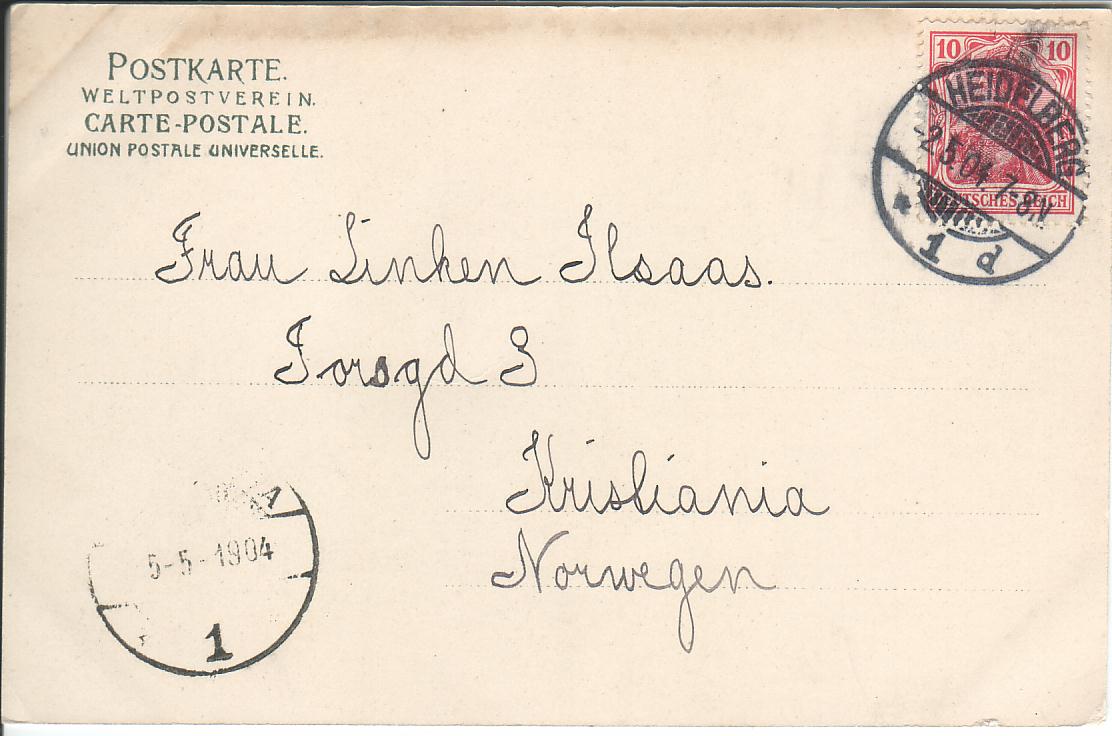 POSTKARTE.
WELTPOSTVEREIN.
CARTE-POSTALE.
UNION POSTALE UNIVERSELLE.
10 10
HEIDELBERG
-2.5.04. 7-8.N
DEUTSCHES REICH
* 1 d
Frau Linken Ilsaas.
Torsgd 3
Kristiania
Norwegen
5-5-1904
1